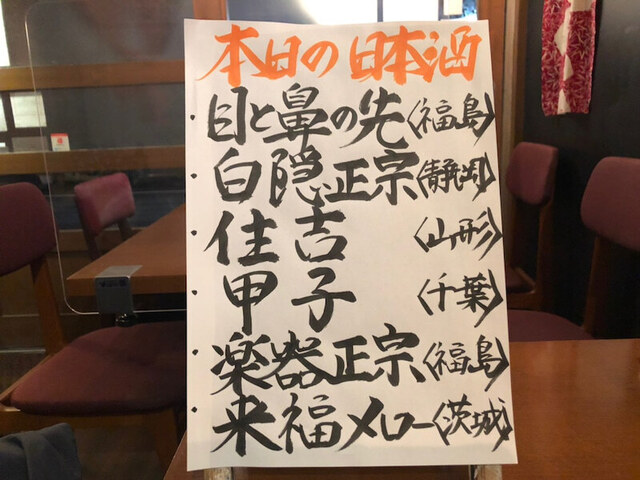 本日の日本酒
・目と鼻の先〈福島〉
・白隠正宗〈静岡〉
・住吉〈山形〉
・甲子〈千葉〉
・楽器正宗〈福島〉
・来福メロー〈茨城〉